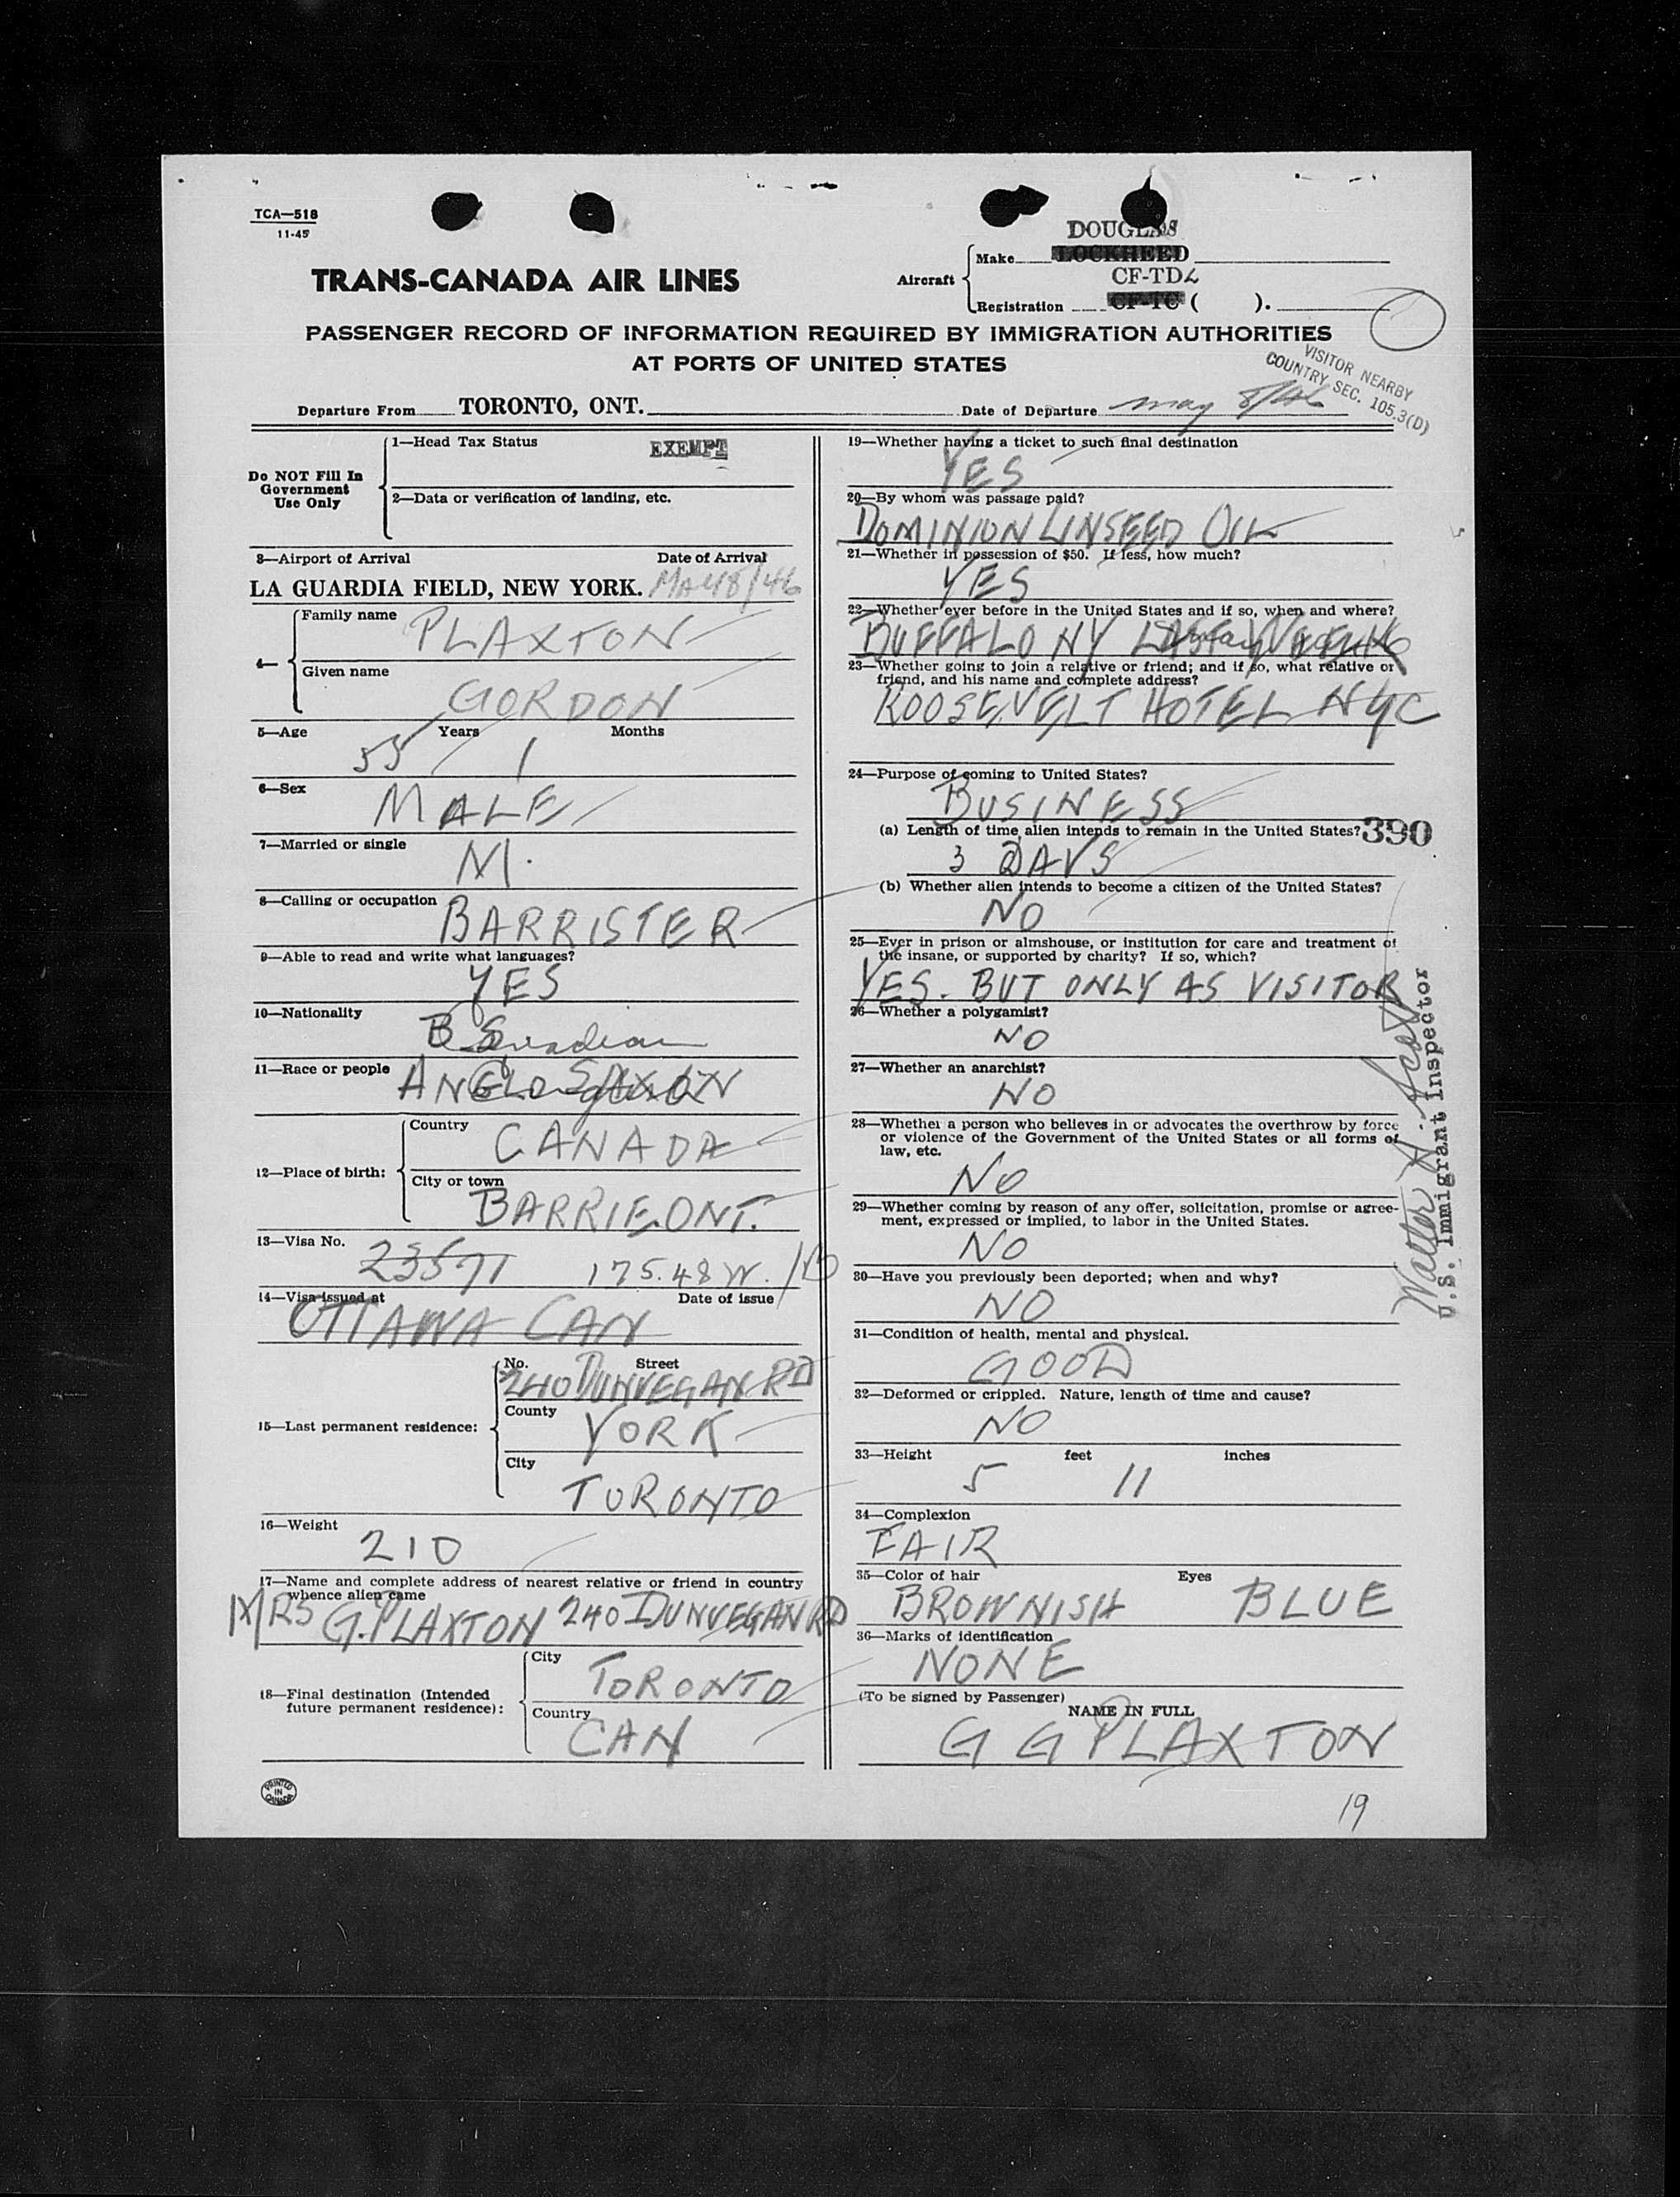 TCA—518
11-45
TRANS-CANADA AIR LINES
Aircraft
Make
DOUGLAS
LOCKHEED
CF-TDL
Registration CF-TC ( ).
PASSENGER RECORD OF INFORMATION REQUIRED BY IMMIGRATION AUTHORITIES
AT PORTS OF UNITED STATES
VISITOR NEARBY
COUNTRY SEC. 105.3(D)
Departure From TORONTO, ONT. Date of Departure may 8/46
Do NOT Fill In
Government
Use Only
1—Head Tax Status EXEMPT
2—Data or verification of landing, etc.
3—Airport of Arrival Date of Arrival
LA GUARDIA FIELD, NEW YORK. MAY 8/46
4—
Family name PLAXTON
Given name GORDON
5—Age Years Months
55 1
6—Sex
MALE
7—Married or single
M.
8—Calling or occupation
BARRISTER
9—Able to read and write what languages?
YES
10—Nationality
B Canadian
11—Race or people ANGLO SAXON
12—Place of birth:
Country
CANADA
City or town
BARRIE ONT.
13—Visa No.
23571 175.48 W.
14—Visa issued at Date of issue
OTTAWA CAN
15—Last permanent residence:
No. Street
240 DUNVEGAN RD
County
YORK
City
TORONTO
16—Weight
210
17—Name and complete address of nearest relative or friend in country
whence alien came
MRS G. PLAXTON 240 DUNVEGAN RD
18—Final destination (Intended
future permanent residence):
City
TORONTO
Country
CAN
PRINTED
IN
CANADA
19—Whether having a ticket to such final destination
YES
20—By whom was passage paid?
DOMINION LINSEED OIL
21—Whether in possession of $50. If less, how much?
YES
22—Whether ever before in the United States and if so, when and where?
BUFFALO NY LAST
23—Whether going to join a relative or friend; and if so, what relative or
friend, and his name and complete address?
ROOSEVELT HOTEL NYC
24—Purpose of coming to United States?
BUSINESS
(a) Length of time alien intends to remain in the United States? 390
3 DAYS
(b) Whether alien intends to become a citizen of the United States?
NO
25—Ever in prison or almshouse, or institution for care and treatment of
the insane, or supported by charity? If so, which?
YES. BUT ONLY AS VISITOR
26—Whether a polygamist?
NO
27—Whether an anarchist?
NO
28—Whether a person who believes in or advocates the overthrow by force
or violence of the Government of the United States or all forms of
law, etc.
NO
29—Whether coming by reason of any offer, solicitation, promise or agree-
ment, expressed or implied, to labor in the United States.
NO
30—Have you previously been deported; when and why?
NO
31—Condition of health, mental and physical.
GOOD
32—Deformed or crippled. Nature, length of time and cause?
NO
33—Height feet inches
5 11
34—Complexion
FAIR
35—Color of hair Eyes
BROWNISH BLUE
36—Marks of identification
NONE
(To be signed by Passenger)
NAME IN FULL
G G PLAXTON
19
Walter A.
U.S. Immigrant Inspector